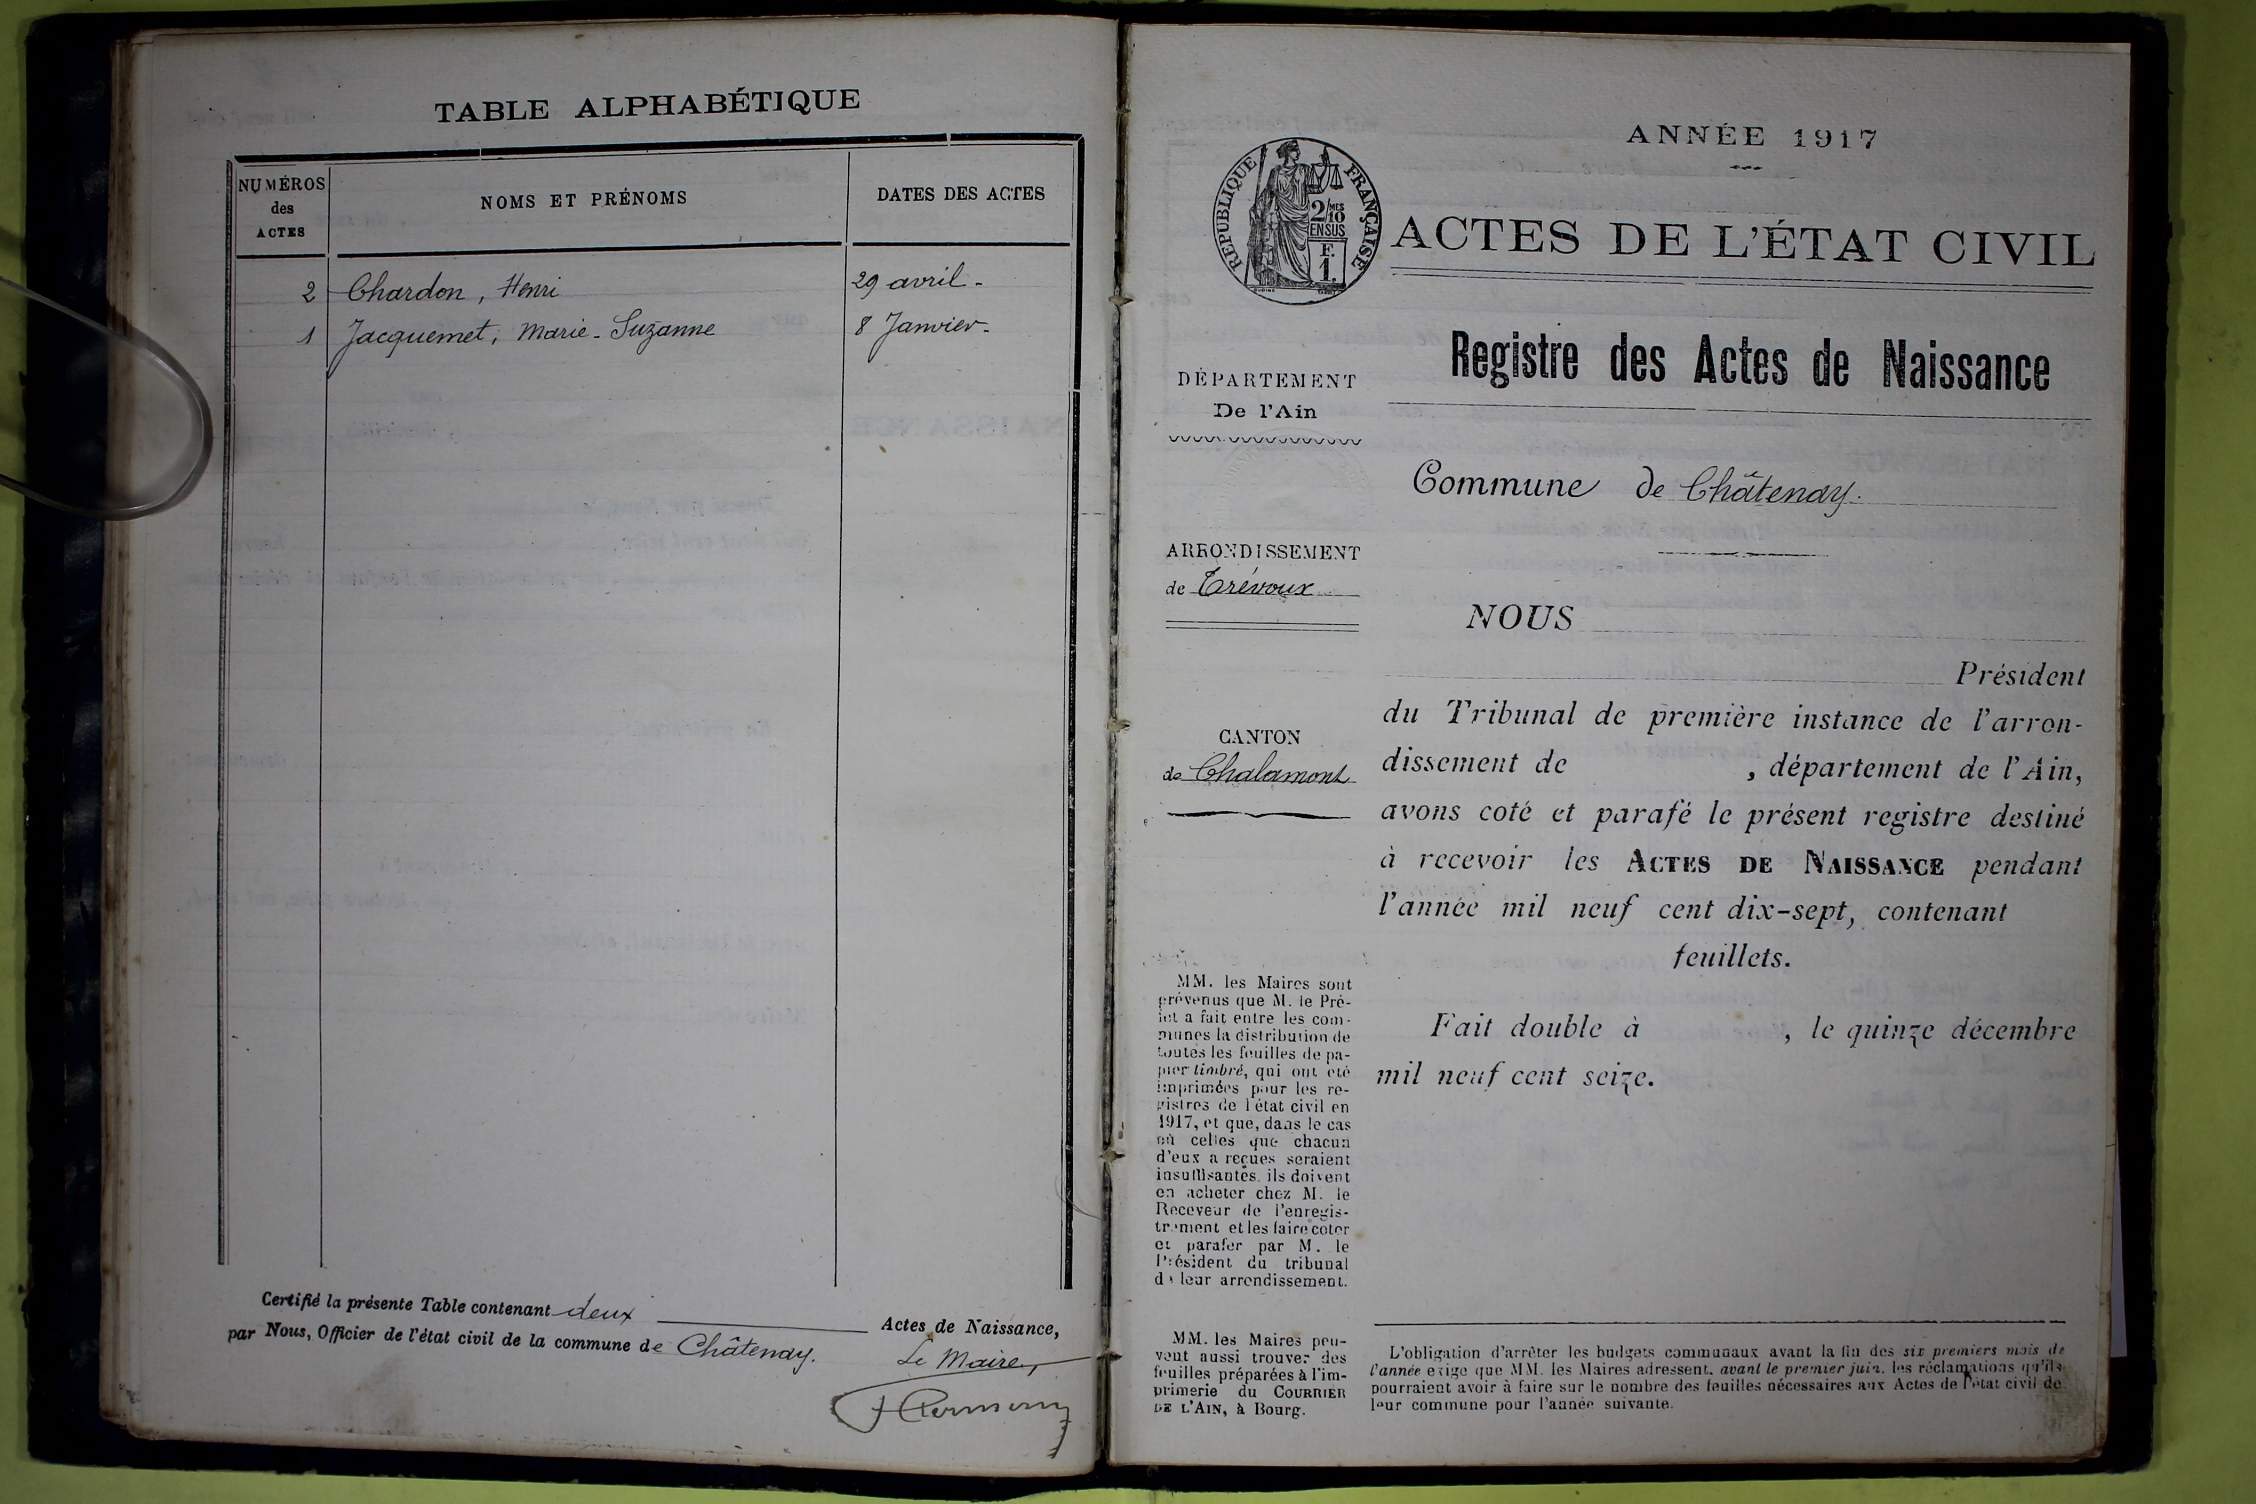 TABLE ALPHABÉTIQUE
NUMÉROS
des
ACTES
NOMS ET PRÉNOMS
DATES DES ACTES
2 Chardon, Henri 29 avril.
1 Jacquemet, Marie-Suzanne 8 Janvier.
Certifié la présente Table contenant deux Actes de Naissance,
par Nous, Officier de l'état civil de la commune de Châtenay.
Le Maire,
ANNÉE 1917
RÉPUBLIQUE FRANÇAISE
2/MES
10
EN SUS
F.
1.
ACTES DE L'ÉTAT CIVIL
Registre des Actes de Naissance
DÉPARTEMENT
De l'Ain
Commune de Châtenay.
ARRONDISSEMENT
de Trévoux
CANTON
de Chalamont
NOUS
Président
du Tribunal de première instance de l'arron-
dissement de , département de l'Ain,
avons coté et parafé le présent registre destiné
à recevoir les ACTES DE NAISSANCE pendant
l'année mil neuf cent dix-sept, contenant
feuillets.
Fait double à , le quinze décembre
mil neuf cent seize.
MM. les Maires sont
prévenus que M. le Pré-
fet a fait entre les com-
munes la distribution de
toutes les feuilles de pa-
pier timbré, qui ont été
imprimées pour les re-
gistres de l'état civil en
1917, et que, dans le cas
où celles que chacun
d'eux a reçues seraient
insuffisantes, ils doivent
en acheter chez M. le
Receveur de l'enregis-
trement et les faire coter
et parafer par M. le
Président du tribunal
de leur arrondissement.
MM. les Maires peu-
vent aussi trouver des
feuilles préparées à l'im-
primerie du COURRIER
DE L'AIN, à Bourg.
L'obligation d'arrêter les budgets communaux avant la fin des six premiers mois de
l'année exige que MM. les Maires adressent, avant le premier juin, les réclamations qu'ils
pourraient avoir à faire sur le nombre des feuilles nécessaires aux Actes de l'état civil de
leur commune pour l'année suivante.